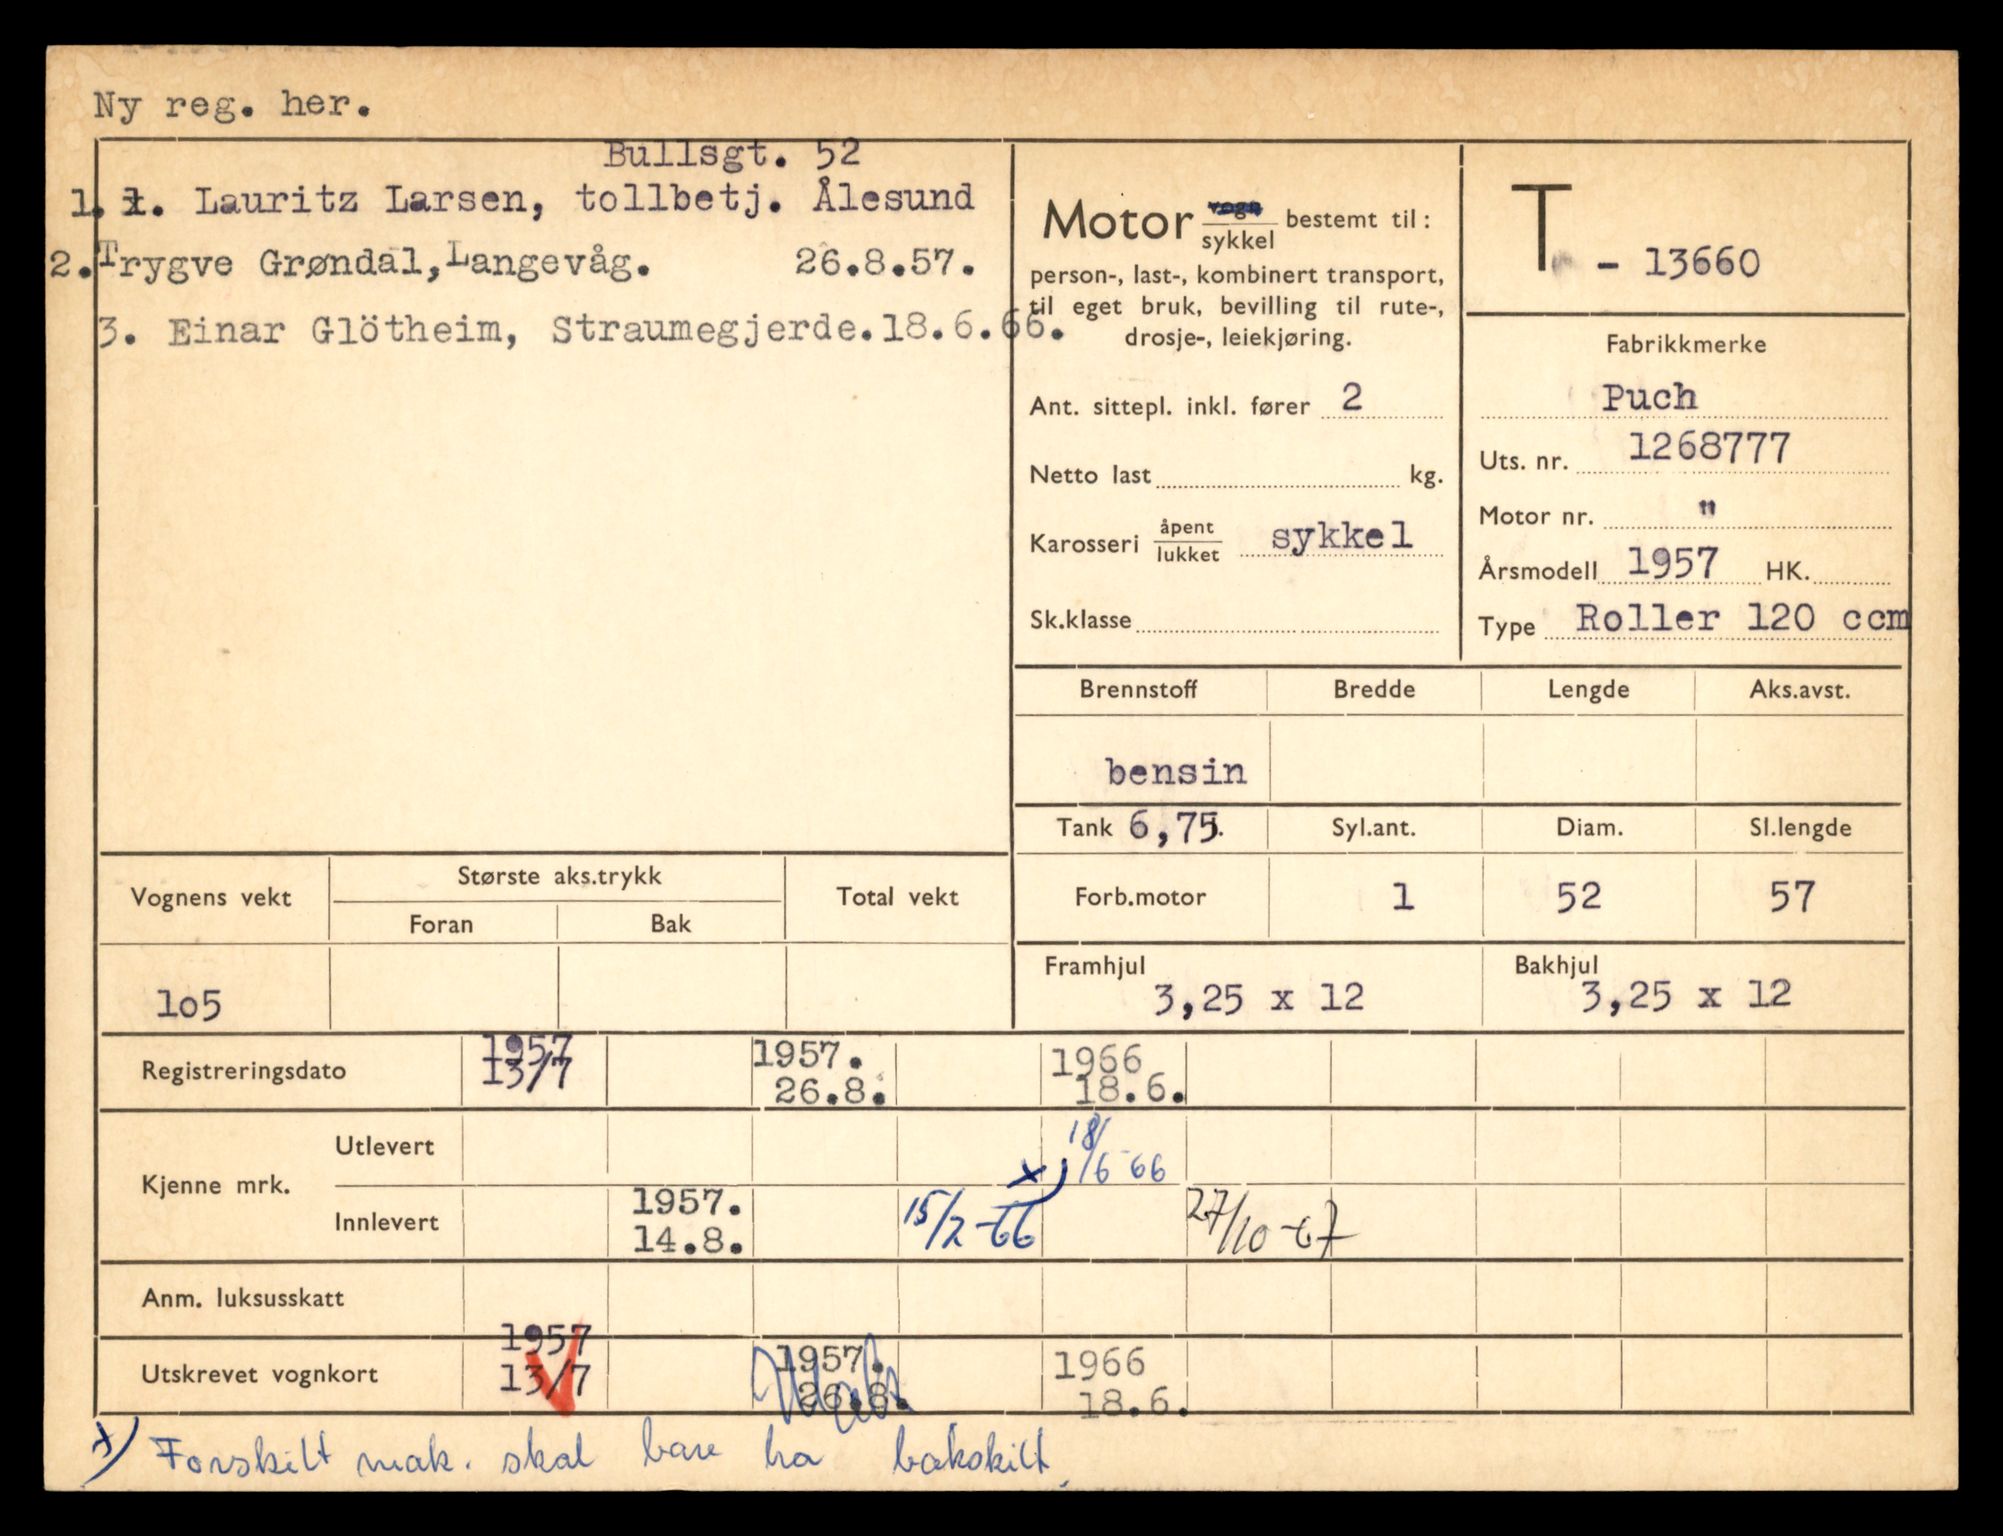 Ny reg. her.
Bullsgt. 52
1. 1. Lauritz Larsen, tollbetj. Ålesund
2. Trygve Grøndal, Langevåg. 26.8.57.
3. Einar Glötheim, Straumegjerde. 18.6.66.
Motor vogn/sykkel bestemt til:
person-, last-, kombinert transport,
til eget bruk, bevilling til rute-,
drosje-, leiekjøring.
Ant. sittepl. inkl. fører 2
Netto last kg.
Karosseri åpent/lukket sykkel
Sk.klasse
T - 13660
Fabrikkmerke
Puch
Uts. nr. 1268777
Motor nr. "
Årsmodell 1957 HK.
Type Roller 120 ccm
Brennstoff Bredde Lengde Aks.avst.
bensin
Tank 6,75 l. Syl.ant. Diam. Sl.lengde
Forb.motor 1 52 57
Framhjul Bakhjul
3,25 x 12 3,25 x 12
Vognens vekt Største aks.trykk Total vekt
Foran Bak
lo5
Registreringsdato 1957 13/7 1957. 26.8. 1966 18.6.
Kjenne mrk.
Utlevert x) 18/6-66
Innlevert 1957. 14.8. 15/2-66 27/10-67
Anm. luksusskatt
Utskrevet vognkort 1957 13/7 1957. 26.8. 1966 18.6.
x) Forskilt mak. skal bare ha bakskilt